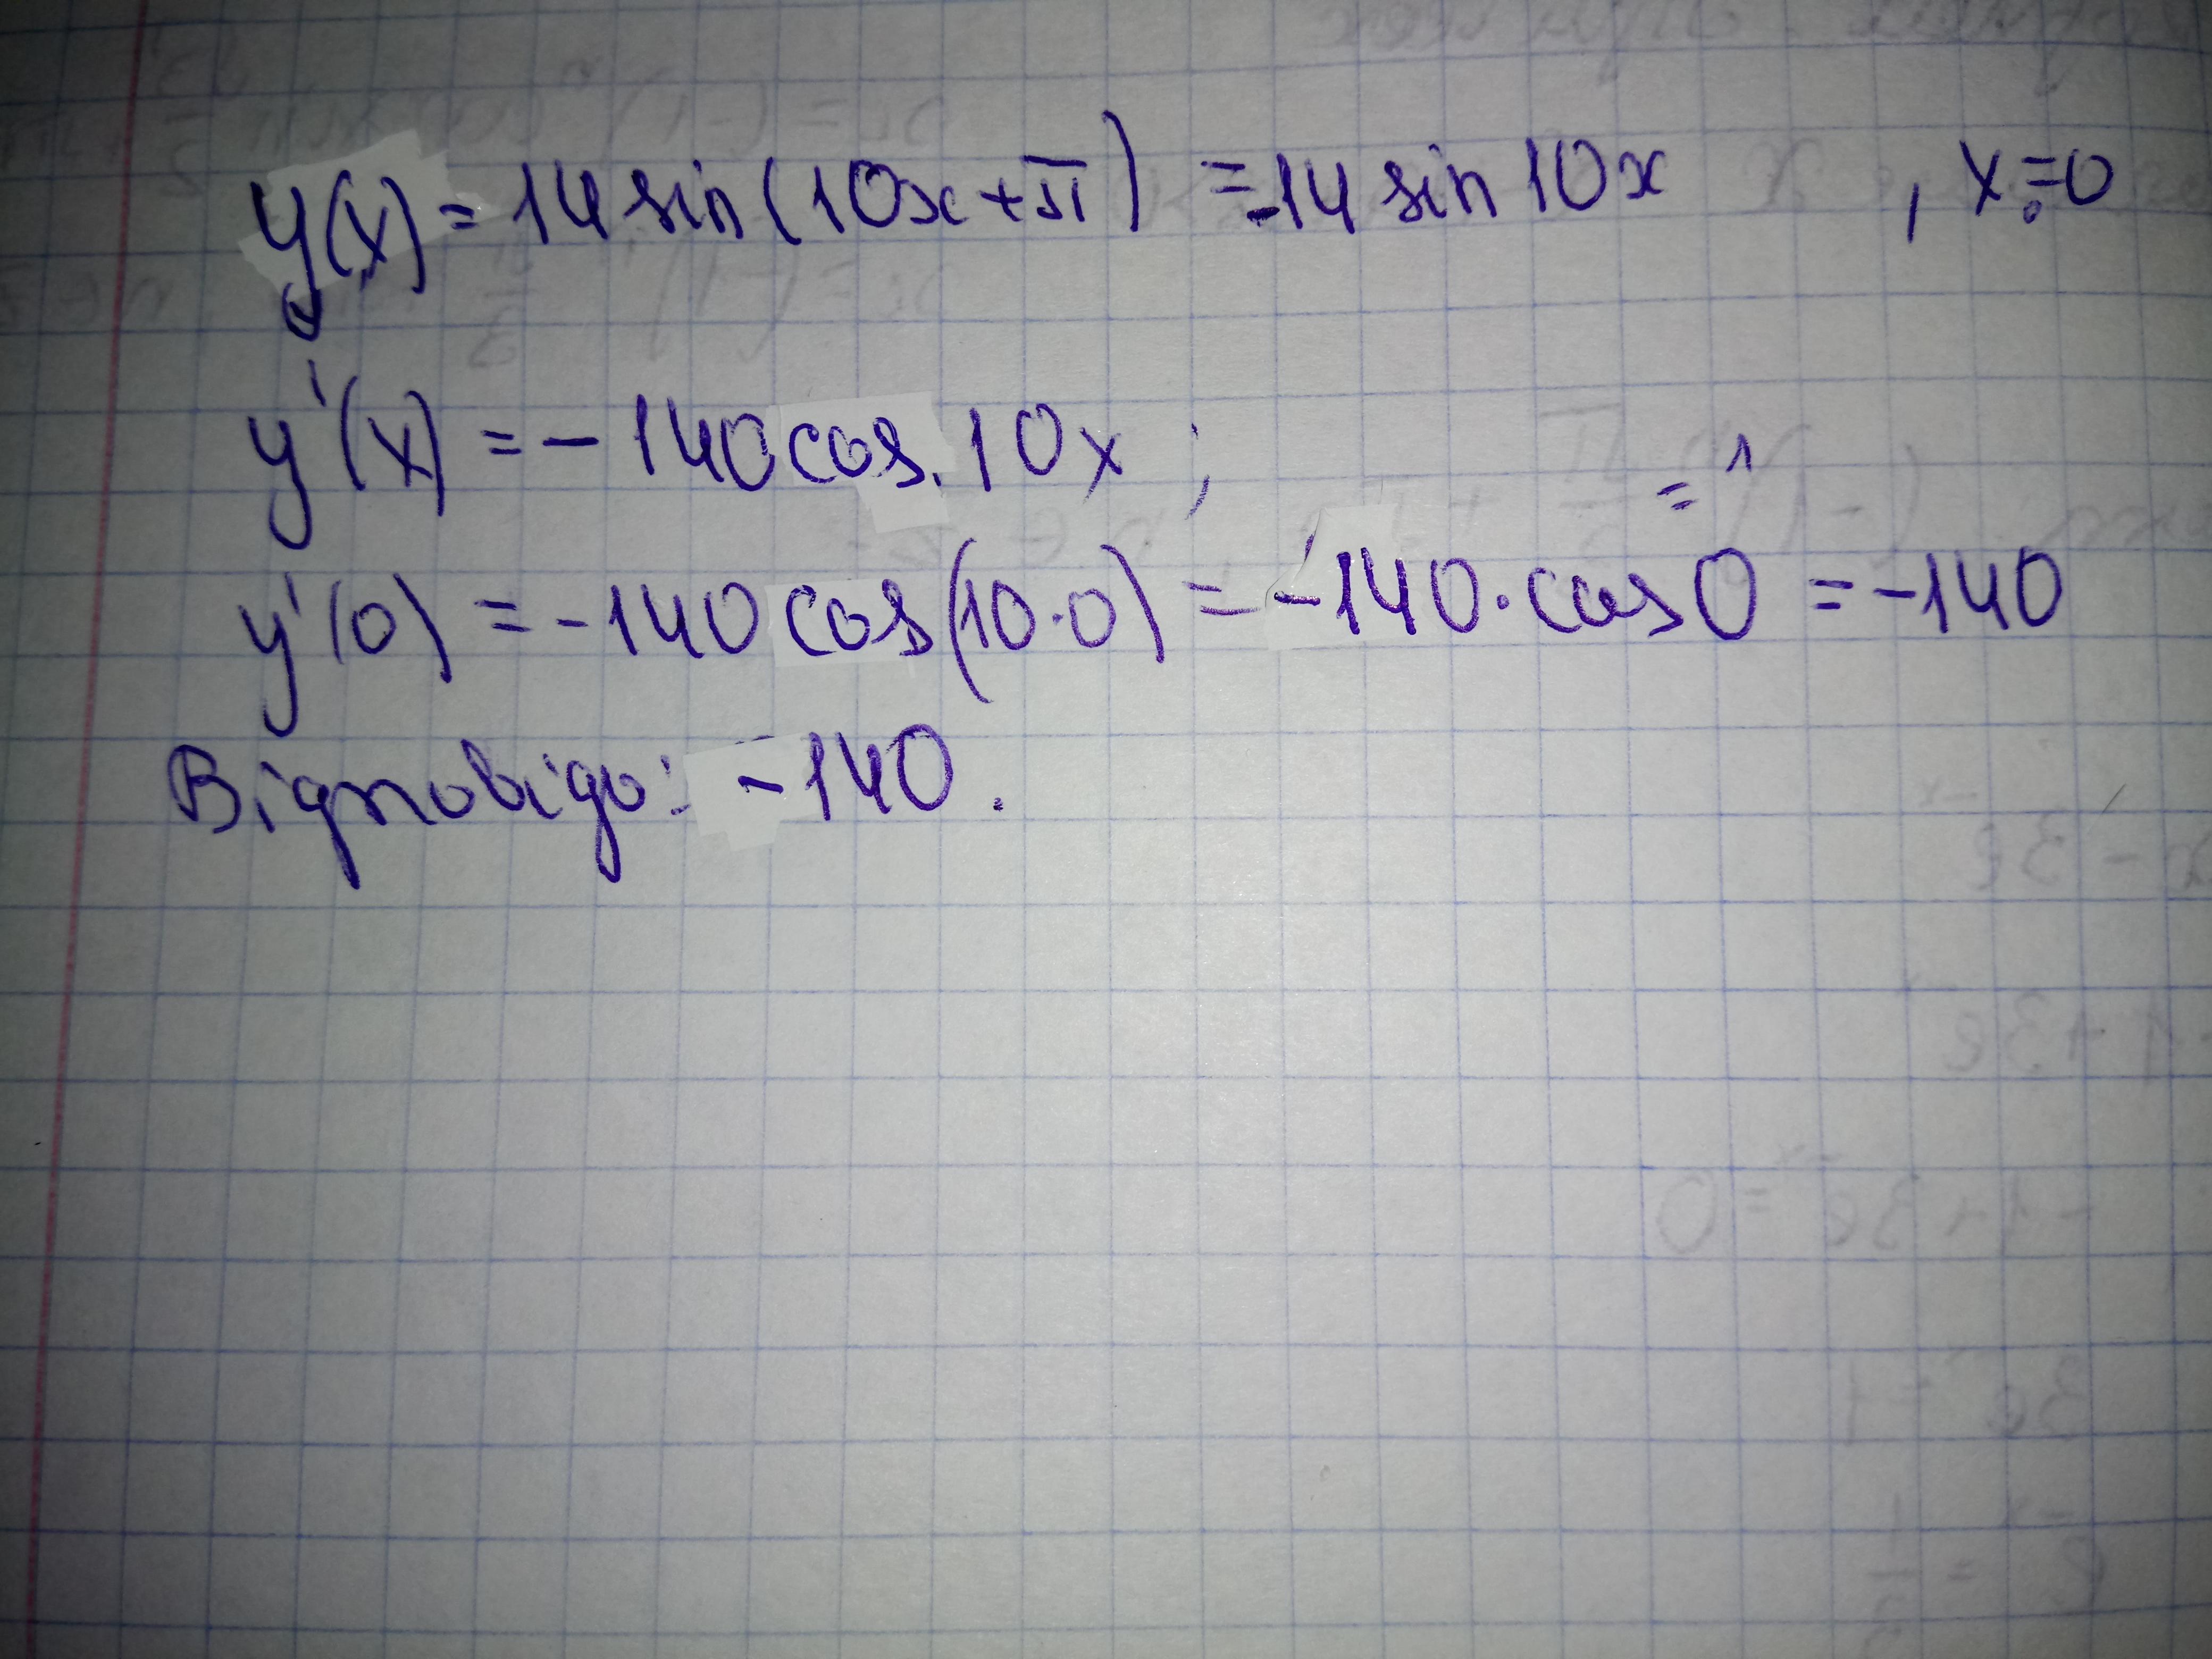 y(x) = 14 sin(10x+π) = -14 sin 10x , x₀=0
y'(x) = - 140 cos 10x ;
= 1
y'(0) = -140 cos(10·0) = -140·cos 0 = -140
Відповідь: -140.